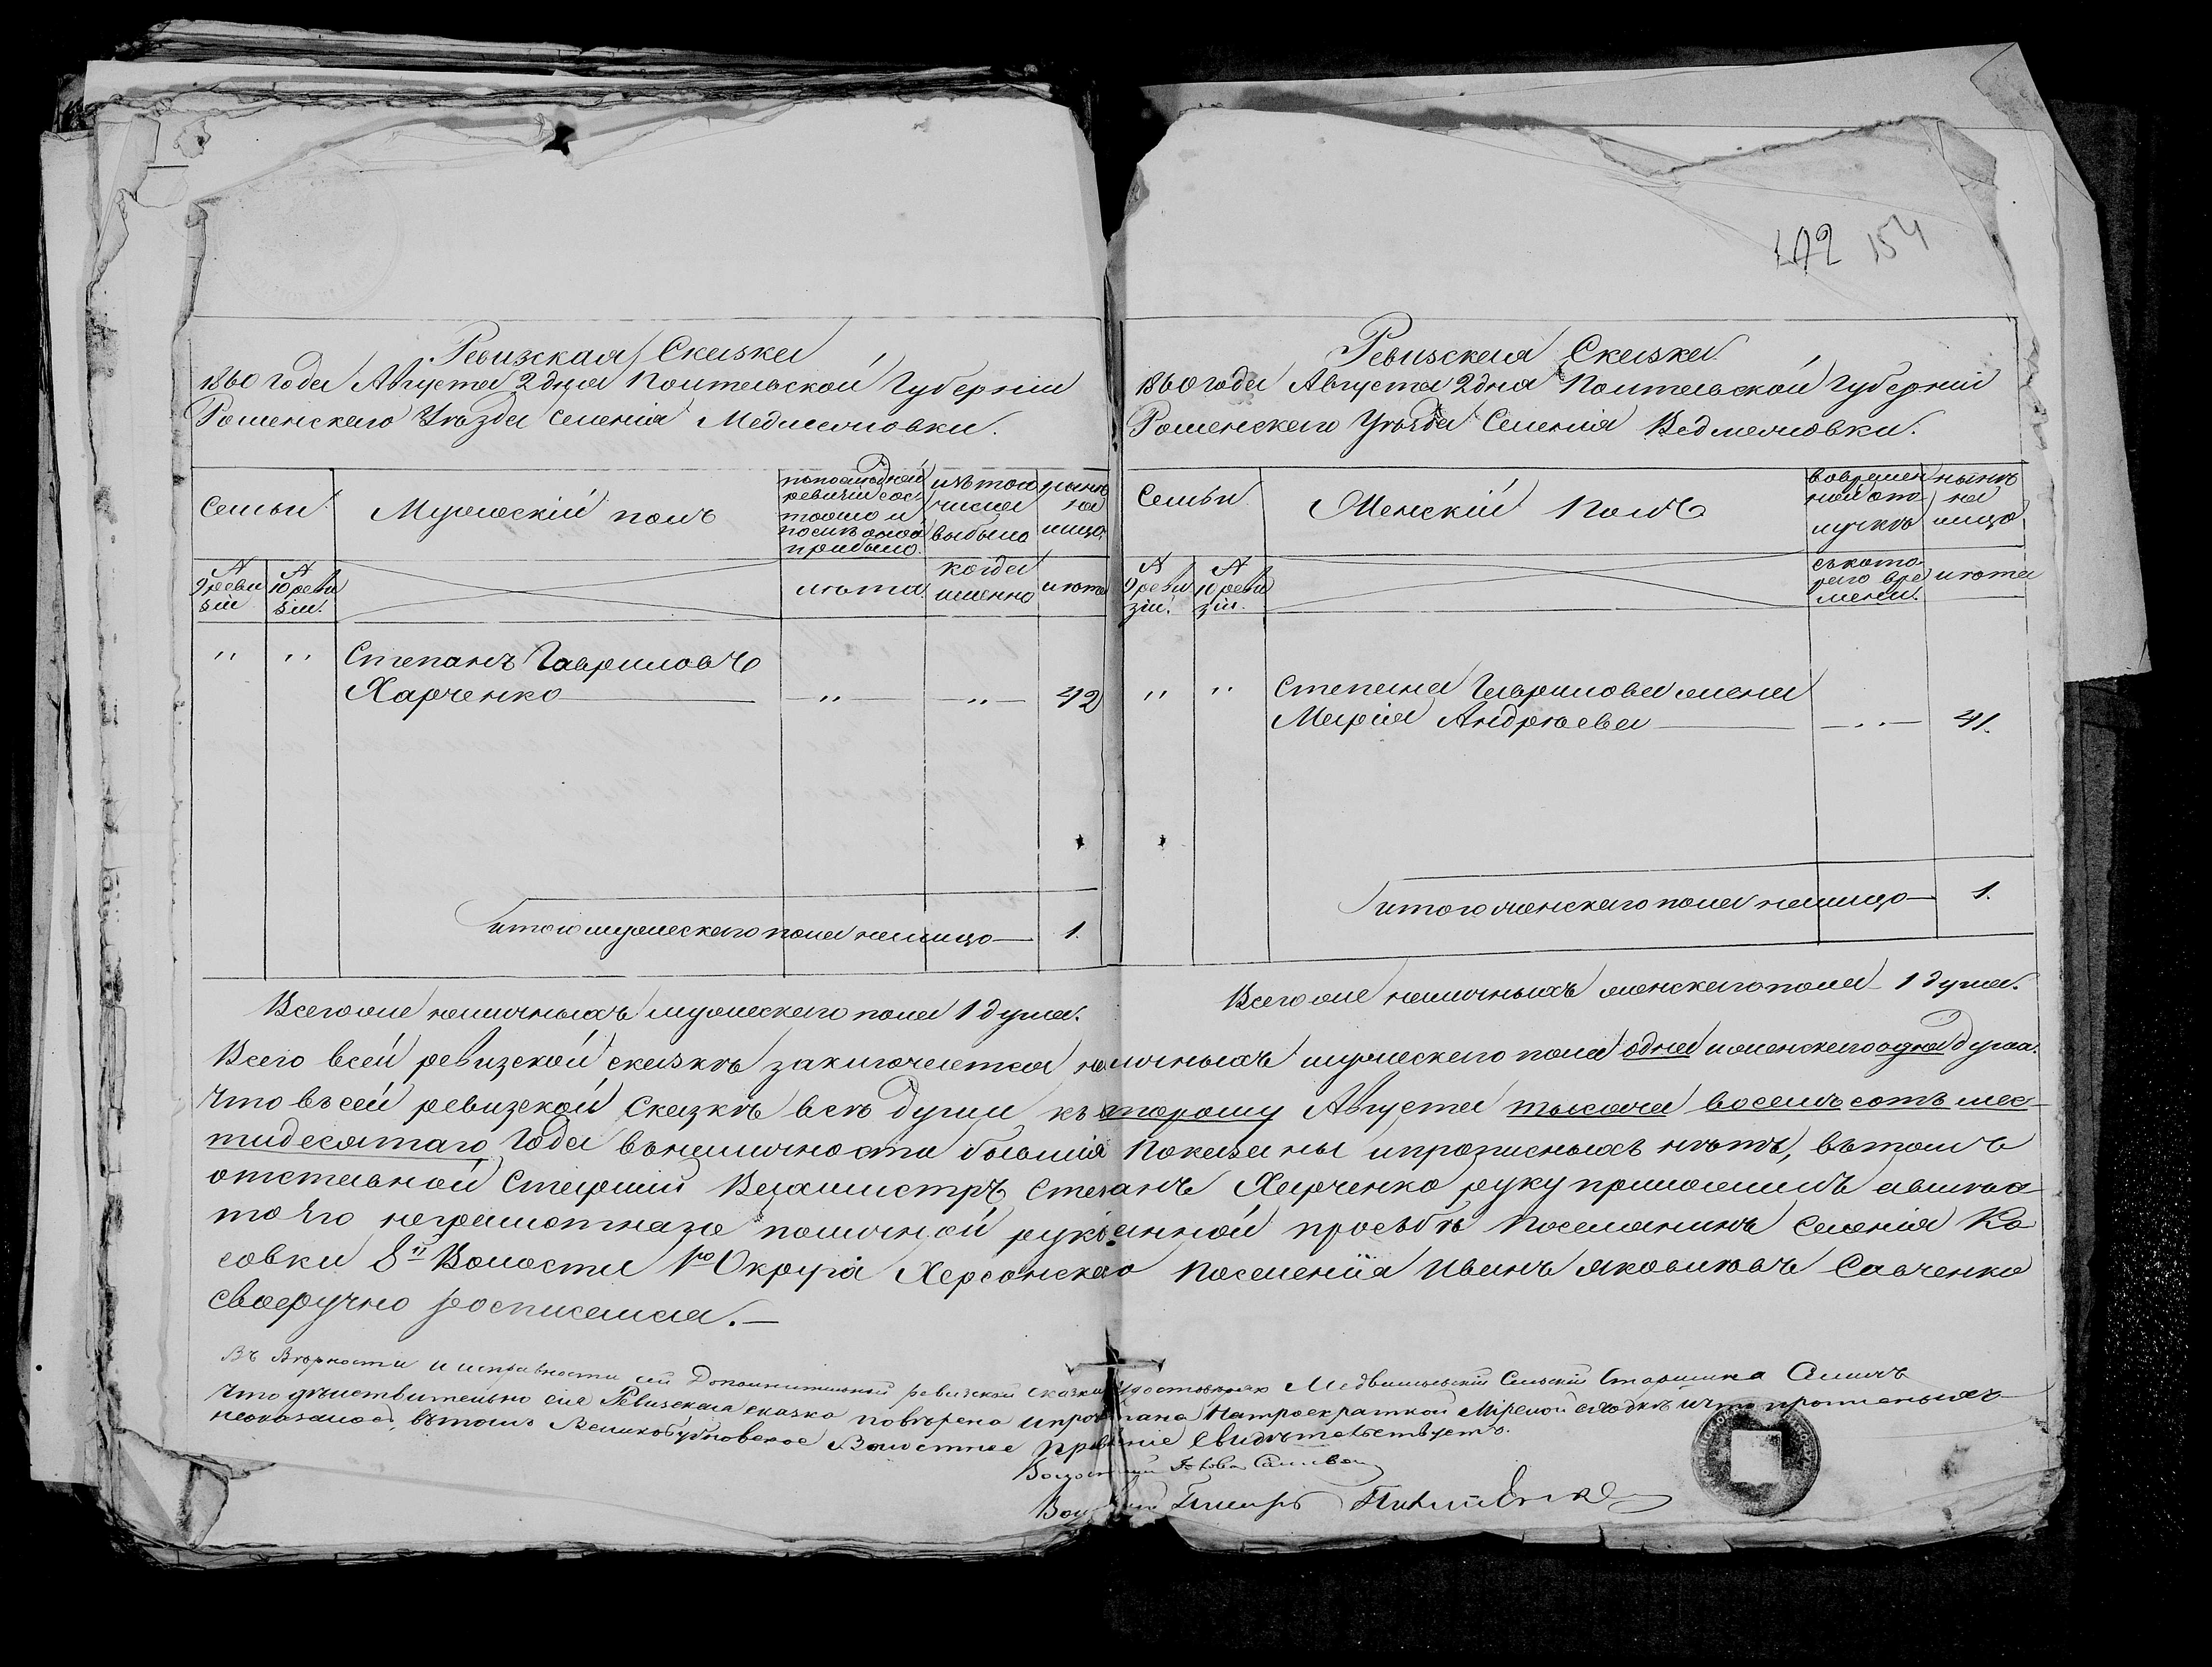 402 154
Ревизская Сказка
1860 года Августа 2 дня Полтавской Губерніи
Роменскаго Уѣзда селенія
Семьи
Мужескій полъ
по последней ревизіи состояло и после оной прибыло
изъ того числа выбыло
нынѣ на лицо
№ 9 ревизіи
№ 10 ревизіи
лѣта
когда именно
лѣта
" " Степанъ Гавриловъ
Харченко " " 42
Итого мужескаго пола на лицо 1.
Всего же наличныхъ мужескаго пола 1 душа.
Ревизская Сказка
1860 года Августа 2 дня Полтавской Губерніи
Роменскаго Уѣзда Селенія
Семьи
Женскій Полъ
во временной отлучкѣ
нынѣ на лицо
№ 9 ревизіи
№ 10 ревизіи
съ котораго времени
лѣта
" " Степана Гаврилова жена
Марія Андрѣева " 41.
Итого женскаго пола на лицо 1.
Всего же наличныхъ женскаго пола 1 душа.
Всего всей ревизской сказкѣ заключается наличныхъ мужескаго пола одна и женскаго одна душа.
Что въ сей ревизской Сказкѣ всѣ души къ второму Августа тысяча восемь сотъ шес-
тидесятаго Года въ наличности бывшія показаны и прописныхъ нѣтъ, въ томъ
отставной Старшій Вахмистръ Степанъ Харченко руку приложилъ а вмѣсто
его неграмотнаго по личной просьбѣ Поселянинъ Селенія Ко
совки 8й Волости 1го Округа Херсонскаго Поселенія Иванъ Яковлевъ Савченко
своеручно росписался.
Въ Вѣрности и исправности сей Дополнительной ревизской сказки удостовѣряю Сельскій Старшина
Что дѣйствительно сія Ревизская сказка повѣрена и прочитана на троекратной Мірской сходкѣ и что
неоказалось, въ томъ Великобубновское Волостное Правленіе Свидѣтельствуетъ.
Волостный Голова
Волостный Писарь